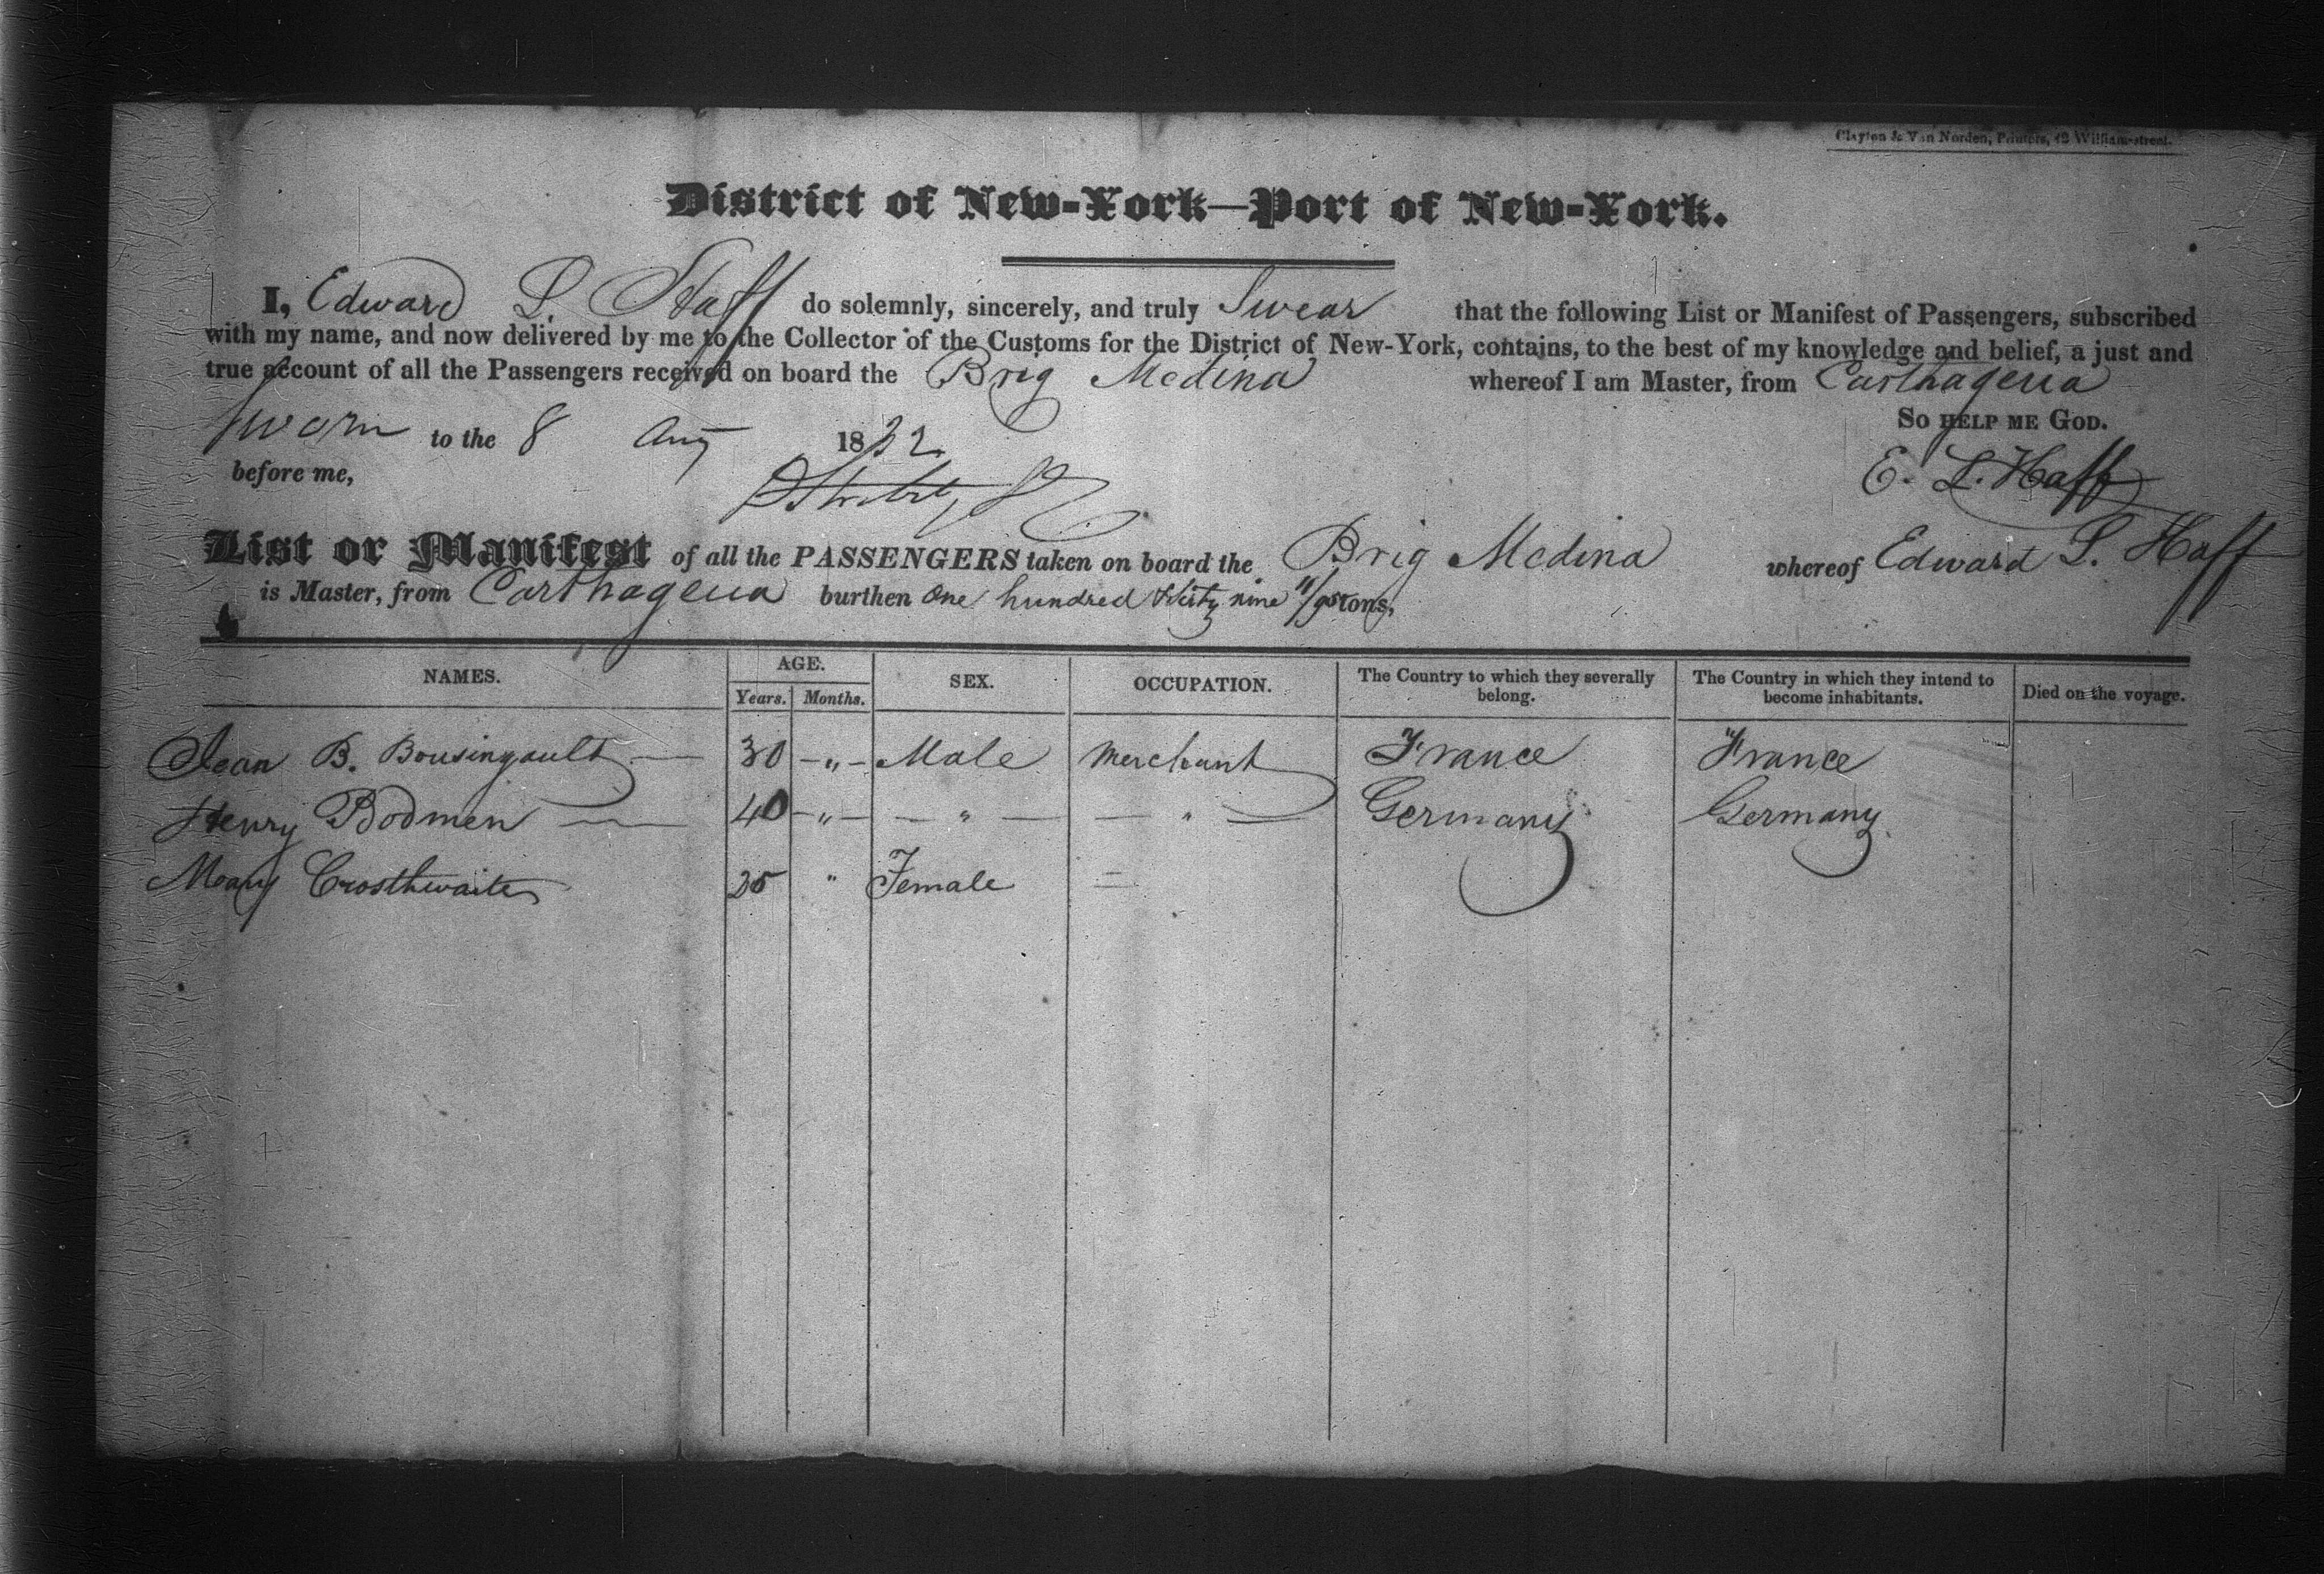 Clayton & Van Norden, Printers, 42 William-street.
District of New-York—Port of New-York.
I, Edward L. Haff do solemnly, sincerely, and truly Swear that the following List or Manifest of Passengers, subscribed
with my name, and now delivered by me to the Collector of the Customs for the District of New-York, contains, to the best of my knowledge and belief, a just and
true account of all the Passengers received on board the Brig Medina whereof I am Master, from Carthagena
Sworn to the 8 Aug 1832. So HELP ME GOD.
before me, E. L. Haff
List or Manifest of all the PASSENGERS taken on board the Brig Medina whereof Edward L. Haff
is Master, from Carthagena burthen One hundred nine 11/95 tons,
NAMES. AGE. SEX. OCCUPATION. The Country to which they severally belong. The Country in which they intend to become inhabitants. Died on the voyage.
Years. Months.
Jean B. Bousingault 30 " Male Merchant France France
Henry Bodmen 40 " " " Germany Germany
Mary Crosthwaite 25 " Female =